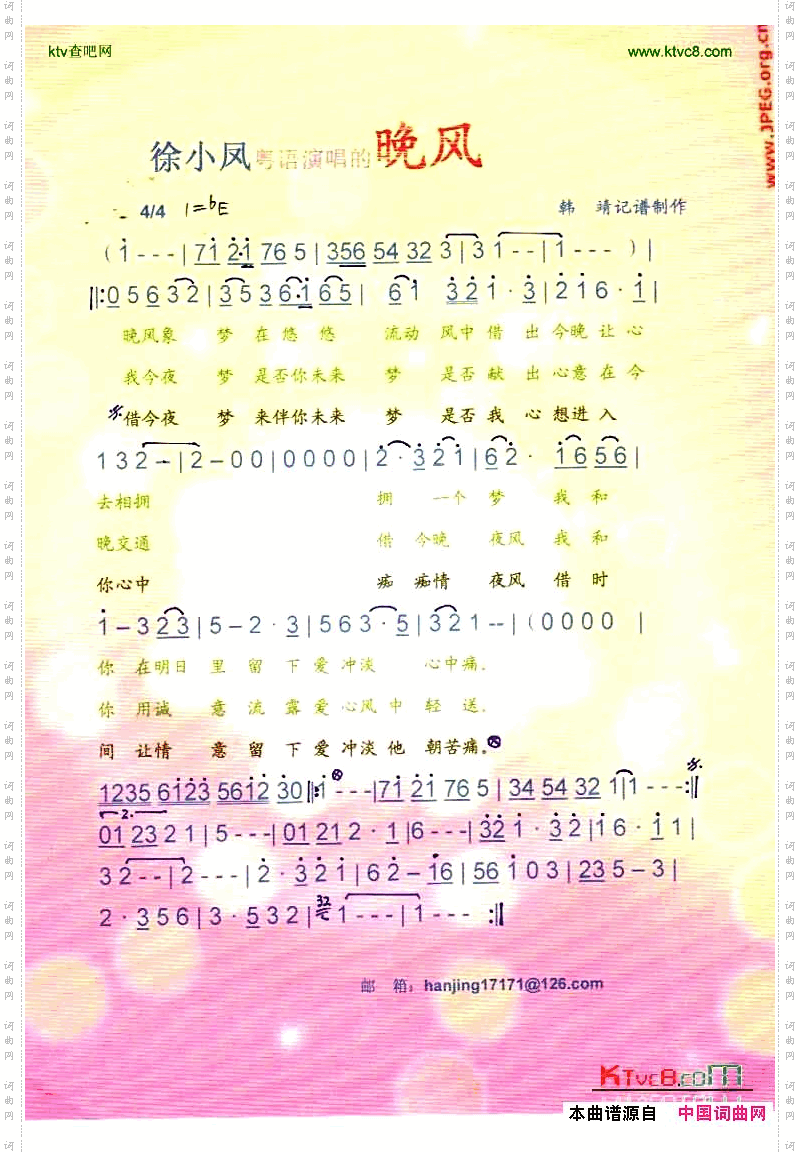 ktv查吧网 www.ktvc8.com
www.JPEG.org.cn
徐小凤粤语演唱的晚风
4/4 1=bE 韩 靖记谱制作
( 1 - - - | 71 2·1 76 5 | 356 54 32 3 | 3 1 - - | 1 - - - ) |
‖: 0 5 6 3 2 | 3 5 3 6·1 6 5 | 6 1 3 2 1 · 3 | 2 1 6 · 1 |
晚风象 梦 在 悠 悠 流动 风中 借 出 今晚 让 心
我今夜 梦 是否你未来 梦 是否 献 出 心意 在 今
借今夜 梦 来伴你未来 梦 是否 我 心 想进 入
1 3 2 - | 2 - 0 0 | 0 0 0 0 | 2 · 3 2 1 | 6 2 · 1 6 5 6 |
去相拥 拥 一个 梦 我 和
晚交通 借 今晚 夜风 我 和
你心中 痴 痴情 夜风 借 时
1 - 3 2 3 | 5 - 2 · 3 | 5 6 3 · 5 | 3 2 1 - - | ( 0 0 0 0 |
你 在明日 里 留 下 爱 冲淡 心中痛.
你 用诚 意 流 露 爱 心风 中 轻 送.
间 让情 意 留 下 爱 冲淡 他 朝苦痛。
1235 6123 5612 30 ‖: 1 - - - | 71 21 76 5 | 34 54 32 1 | 1 - - - :‖
2.
01 23 2 1 | 5 - - - | 01 21 2 · 1 | 6 - - - | 32 1 · 3 2 | 1 6 · 1 1 |
3 2 - - | 2 - - - | 2 · 3 2 1 | 6 2 - 1 6 | 56 1 0 3 | 23 5 - 3 |
2 · 3 5 6 | 3 · 5 3 2 | 32 1 - - - | 1 - - - :‖
邮 箱：hanjing17171@126.com
KTvc8.com
本曲谱源自 中国词曲网